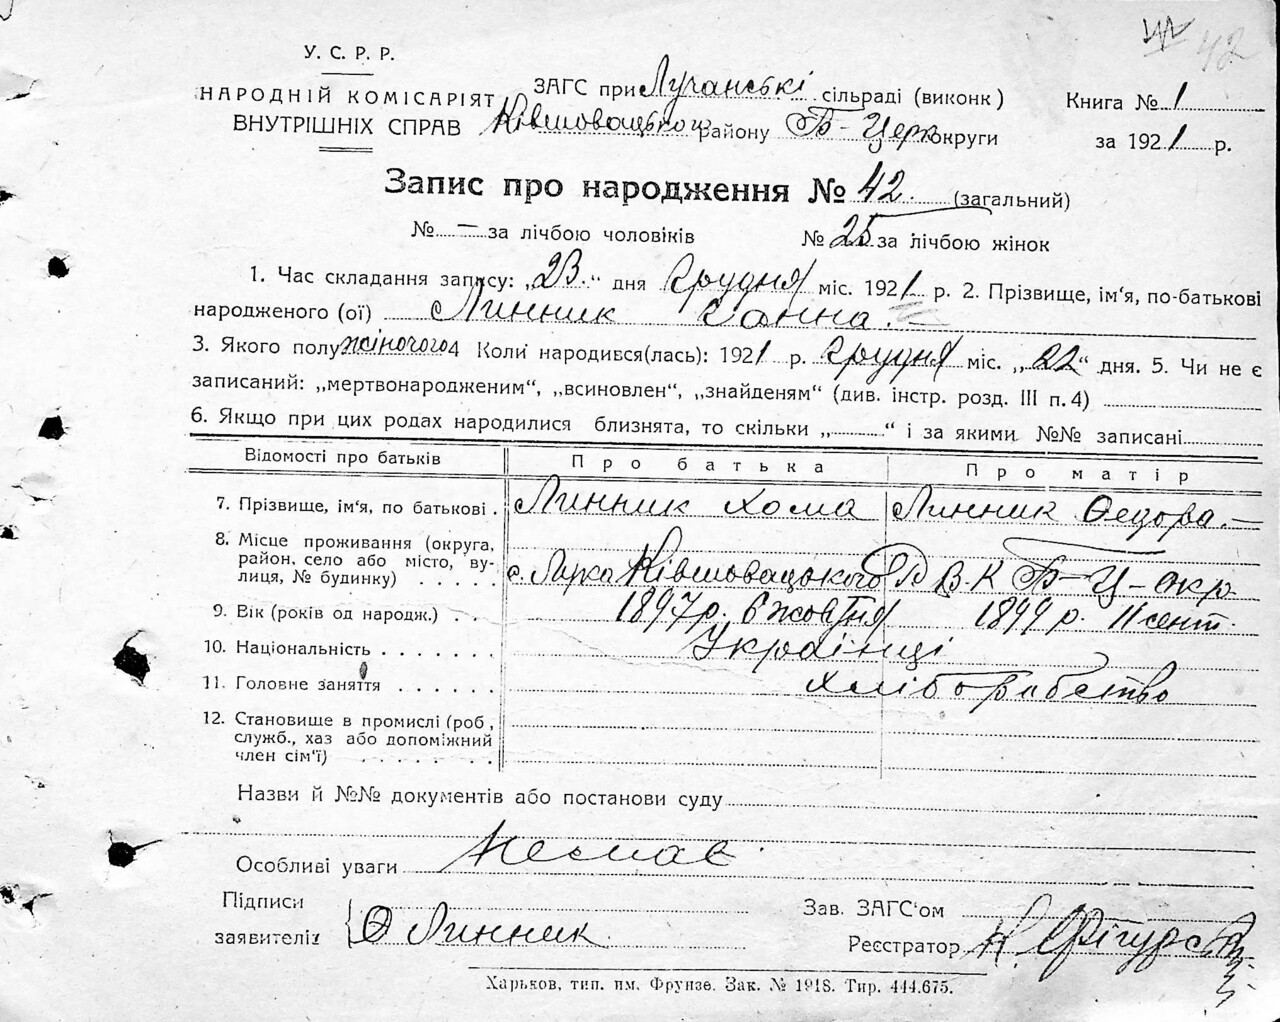 42
У. С. Р. Р.
НАРОДНІЙ КОМІСАРІЯТ
ВНУТРІШНІХ СПРАВ
ЗАГС при Лучанські сільраді (виконк)
Ківшовацького району Б-Церк округи
Книга № 1
за 1921 р.
Запис про народження № 42. (загальний)
№ — за лічбою чоловіків № 25 за лічбою жінок
1. Час складання запису: „23.“ дня Грудня міс. 1921 р. 2. Прізвище, ім'я, по-батькові
народженого (ої) Линник Ганна. —
3. Якого полу жіночого 4 Коли народився(лась): 1921 р. Грудня міс. „22“ дня. 5. Чи не є
записаний: „мертвонародженим“, „всиновлен“, „знайденям“ (див. інстр. розд. III п. 4)
6. Якщо при цих родах народилися близнята, то скільки „ “ і за якими №№ записані
Відомості про батьків Про батька Про матір
7. Прізвище, ім'я, по батькові . Линник Хома Линник Федора. —
8. Місце проживання (округа,
район, село або місто, ву-
лиця, № будинку) . . . . с. Лука Ківшовацького Р В-К Б-Ц-окр.
9. Вік (років од народж.) . . 1897 р. 6 жовтня 1899 р. 11 сент.
10. Національність . . . . . . . Українці
11. Головне заняття . . . . . . Хліборобство
12. Становище в промислі (роб,
служб., хаз або допоміжний
член сім'ї) . . . . . . .
Назви й №№ документів або постанови суду
Особливі уваги Немає.
Підписи
заявителів
Ф Линник
Зав. ЗАГС'ом
Реєстратор
Харьков, тип. им. Фрунзе. Зак. № 1918. Тир. 444.675.